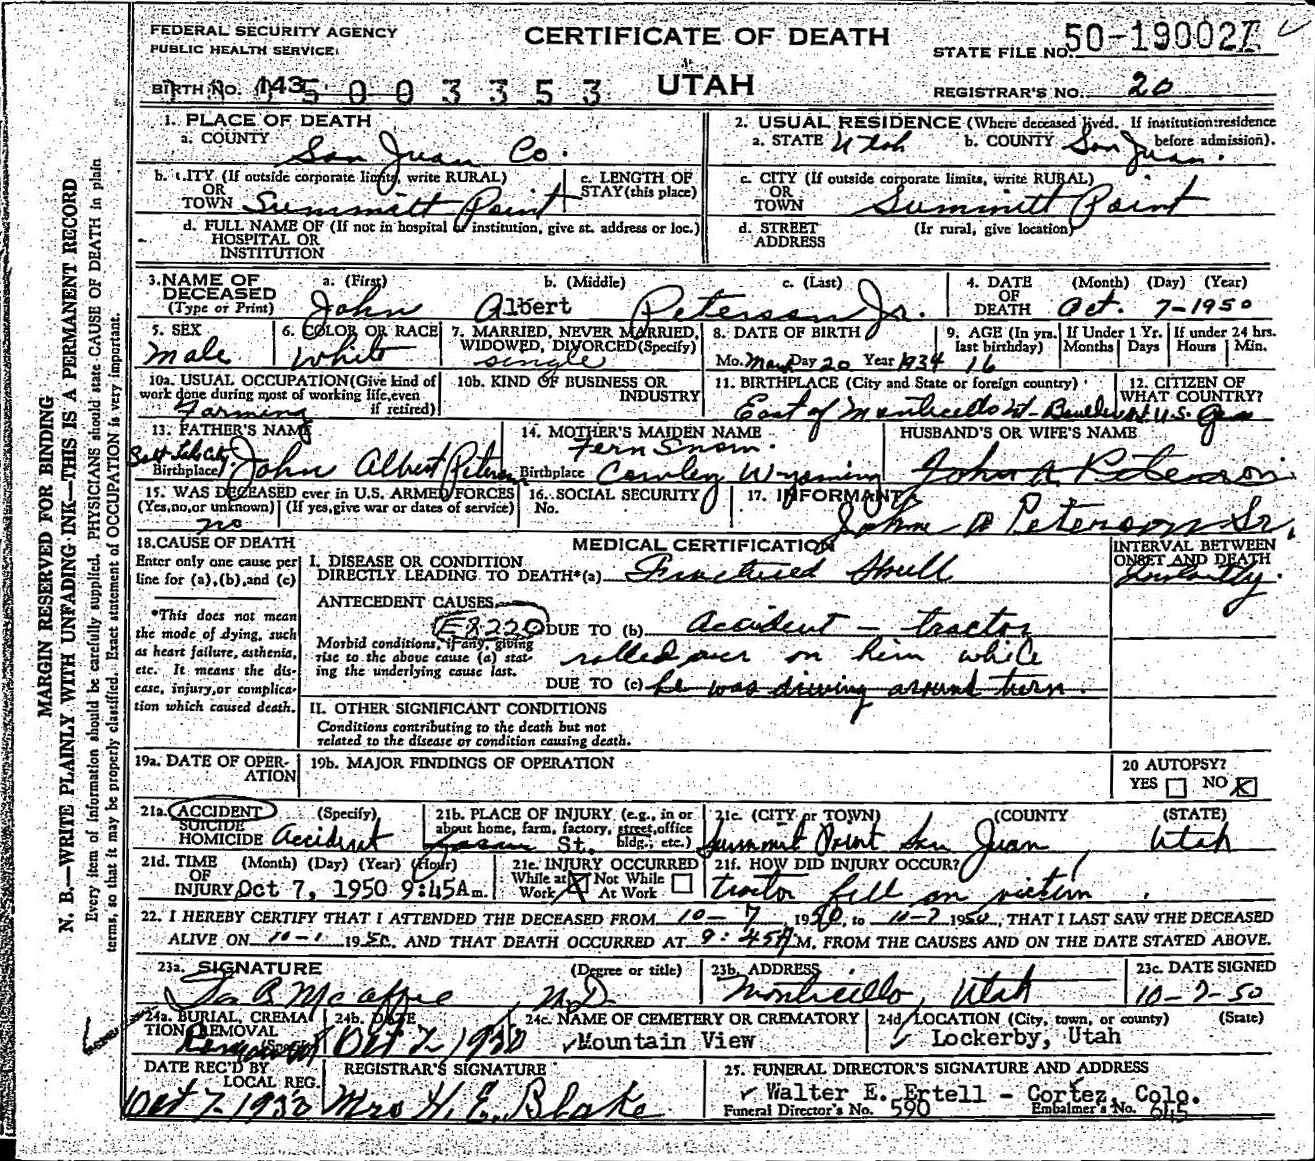 FEDERAL SECURITY AGENCY
PUBLIC HEALTH SERVICE
CERTIFICATE OF DEATH
STATE FILE NO. 50-190027
BIRTH NO. 143
5 0 0 3 3 5 3
UTAH
REGISTRAR'S NO. 20
1. PLACE OF DEATH
a. COUNTY San Juan Co.
2. USUAL RESIDENCE (Where deceased lived. If institution: residence before admission).
a. STATE Utah b. COUNTY San Juan.
b. CITY (If outside corporate limits, write RURAL) OR TOWN Summitt Point
c. LENGTH OF STAY (this place)
c. CITY (If outside corporate limits, write RURAL) OR TOWN Summitt Point
d. FULL NAME OF (If not in hospital or institution, give st. address or loc.) HOSPITAL OR INSTITUTION
d. STREET ADDRESS (If rural, give location)
3. NAME OF DECEASED (Type or Print)
a. (First) b. (Middle) c. (Last)
John Albert Peterson Jr.
4. DATE OF DEATH (Month) (Day) (Year)
Oct. 7-1950
5. SEX
Male
6. COLOR OR RACE
White
7. MARRIED, NEVER MARRIED, WIDOWED, DIVORCED (Specify)
single
8. DATE OF BIRTH
Mo. Day 20 Year 1934
9. AGE (In yrs. last birthday)
16
If Under 1 Yr. Months Days
If under 24 hrs. Hours Min.
10a. USUAL OCCUPATION (Give kind of work done during most of working life, even if retired)
Farming
10b. KIND OF BUSINESS OR INDUSTRY
11. BIRTHPLACE (City and State or foreign country)
East of Monticello
12. CITIZEN OF WHAT COUNTRY?
U.S.
13. FATHER'S NAME
Birthplace Salt Lake City John Albert Peterson
14. MOTHER'S MAIDEN NAME
Fern Snow.
Birthplace Cowley Wyoming
HUSBAND'S OR WIFE'S NAME
John A Peterson
15. WAS DECEASED ever in U.S. ARMED FORCES
(Yes, no, or unknown) (If yes, give war or dates of service)
no
16. SOCIAL SECURITY No.
17. INFORMANT
John A Peterson Sr.
18. CAUSE OF DEATH
Enter only one cause per line for (a), (b), and (c)
*This does not mean the mode of dying, such as heart failure, asthenia, etc. It means the disease, injury, or complication which caused death.
MEDICAL CERTIFICATION
INTERVAL BETWEEN ONSET AND DEATH
Instantly.
I. DISEASE OR CONDITION DIRECTLY LEADING TO DEATH*(a) Fractured Skull
ANTECEDENT CAUSES
E8220
DUE TO (b) accident - tractor
Morbid conditions, if any, giving rise to the above cause (a) stating the underlying cause last.
rolled over on him while
DUE TO (c) he was driving around turn.
II. OTHER SIGNIFICANT CONDITIONS
Conditions contributing to the death but not related to the disease or condition causing death.
19a. DATE OF OPERATION
19b. MAJOR FINDINGS OF OPERATION
20 AUTOPSY?
YES NO X
21a. ACCIDENT SUICIDE HOMICIDE (Specify)
Accident
21b. PLACE OF INJURY (e.g., in or about home, farm, factory, street, office bldg., etc.)
St.
21c. (CITY or TOWN) (COUNTY) (STATE)
Summit Point San Juan, Utah
21d. TIME OF INJURY (Month) (Day) (Year) (Hour)
Oct 7, 1950 9:45Am.
21e. INJURY OCCURRED
While at Work X Not While At Work
21f. HOW DID INJURY OCCUR?
tractor fell on victim.
22. I HEREBY CERTIFY THAT I ATTENDED THE DECEASED FROM 10-7, 1950, to 10-7 1950, THAT I LAST SAW THE DECEASED
ALIVE ON 1950, AND THAT DEATH OCCURRED AT 9:45A M. FROM THE CAUSES AND ON THE DATE STATED ABOVE.
23a. SIGNATURE (Degree or title)
M.D.
23b. ADDRESS
Monticello, Utah
23c. DATE SIGNED
10-7-50
24a. BURIAL, CREMATION REMOVAL (Specify)
24b. DATE
Oct 7, 1950
24c. NAME OF CEMETERY OR CREMATORY
Mountain View
24d. LOCATION (City, town, or county) (State)
Lockerby, Utah
DATE REC'D BY LOCAL REG.
Oct 7-1950
REGISTRAR'S SIGNATURE
Mrs H. E. Blake
25. FUNERAL DIRECTOR'S SIGNATURE AND ADDRESS
Walter E. Ertell - Cortez, Colo.
Funeral Director's No. 590 Embalmer's No. 645
MARGIN RESERVED FOR BINDING
N. B.—WRITE PLAINLY WITH UNFADING INK—THIS IS A PERMANENT RECORD
Every item of information should be carefully supplied. PHYSICIANS should state CAUSE OF DEATH in plain
terms, so that it may be properly classified. Exact statement of OCCUPATION is very important.